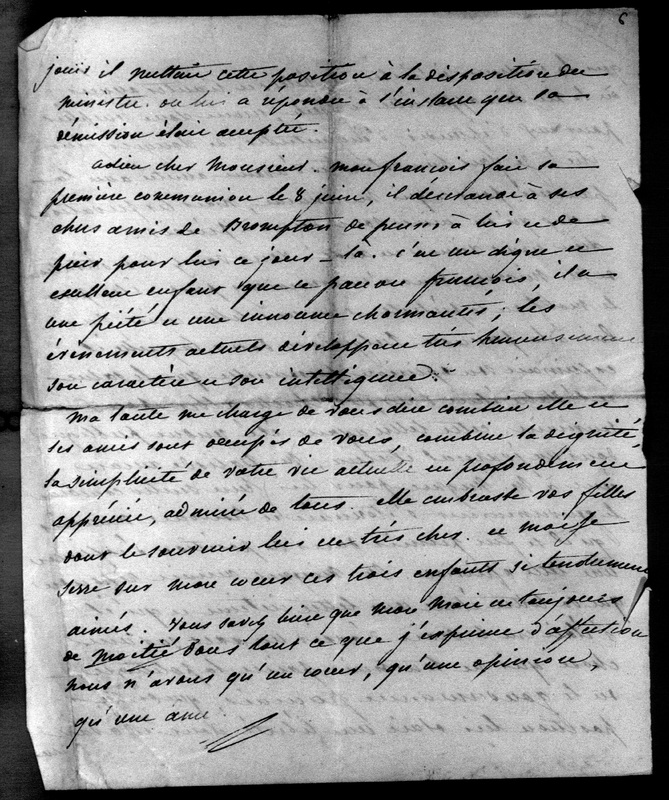 6
jours il mettait cette position à la disposition du
ministre. on lui a répondu à l'instant que sa
démission était acceptée.
adieu cher Monsieur. mon françois fait sa
première communion le 8 juin, il demande à ses
chers amis de Brompton de penser à lui et de
prier pour lui ce jour-là. c'est un digne et
excellent enfant que ce pauvre françois, il a
une piété et une innocence charmantes; les
événements actuels développent très heureusement
son caractère et son intelligence.
Ma tante me charge de vous dire combien elle et
ses amis sont occupés de vous, combien la dignité,
la simplicité de votre vie actuelle est profondément
appréciée, admirée de tous. Elle embrasse vos filles
dont le souvenir lui est très cher. et moi je
serre sur mon coeur ces trois enfants si tendrement
aimés. Vous savez bien que mon mari est toujours
de moitié dans tout ce que j'exprime d'affection
nous n'avons qu'un coeur, qu'une opinion,
qu'une âme.